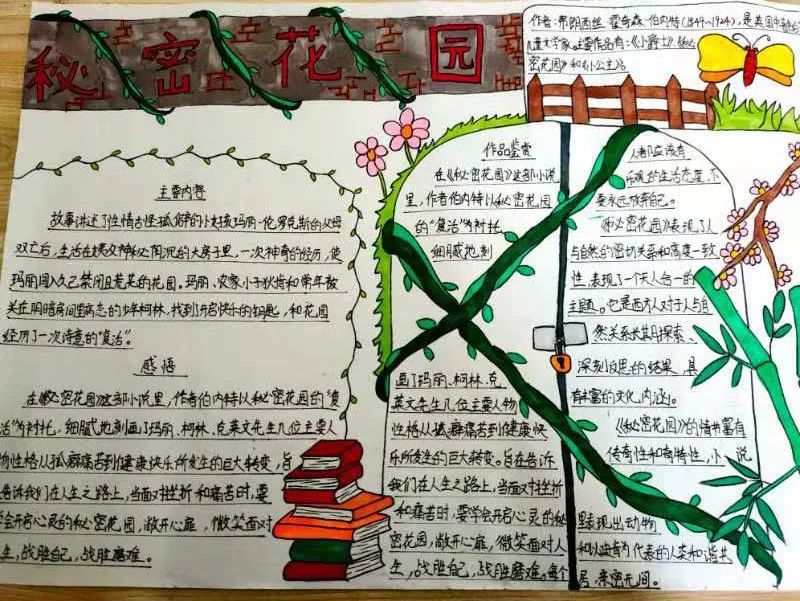 秘密花园
作者:弗朗西丝·霍奇森·伯内特(1849~1924),是美国
儿童文学家。主要作品有:《小爵士》《秘
密花园》和《小公主》。
主要内容
故事讲述了性情古怪孤僻的小女孩玛丽·伦罗克斯的父母
双亡后,生活在姨父神秘阴沉的大房子里,一次神奇的经历,使
玛丽闯入久已禁闭且荒芜的花园。玛丽、农家小子狄肯和常年被
关在阴暗房间里病态的少年柯林,找到开启快乐的钥匙,和花园
经历了一次诗意的“复活”。
感悟
在《秘密花园》这部小说里,作者伯内特以秘密花园的“复
活”为衬托,细腻地刻画了玛丽、柯林、克英文先生几位主要人
物性格从孤癖痛苦到健康快乐所发生的巨大转变,旨
告诉我们在人生之路上,当面对挫折和痛苦时,要
学会开启心灵的秘密花园,敞开心扉,微笑面对
生,战胜自己,战胜磨难。
作品鉴赏
在《秘密花园》这部小说
里,作者伯内特以秘密花园
的“复活”为衬托
细腻地刻
画了玛丽、柯林、克
英文先生几位主要人物
性格从孤癖痛苦到健康快
乐所发生的巨大转变。旨在告诉
我们在人生之路上,当面对挫折
和痛苦时,要学会开启心灵的秘
密花园,敞开心扉,微笑面对人
生,战胜自己,战胜磨难。每个
人都应该有
乐观的生活态度,不
要永远放弃自己。
《秘密花园》表现了人
与自然的密切关系和高度一致
性,表现了一个天人合一的
主题。它是西方人对于人与自
然关系长其月探索、
深刻反思的结果,具
有丰富的文化内涵。
《秘密花园》的情节富有
传奇性和奇特性,小说
里表现出动物
和以迪肯为代表的人类和谐共
居,亲密无间。